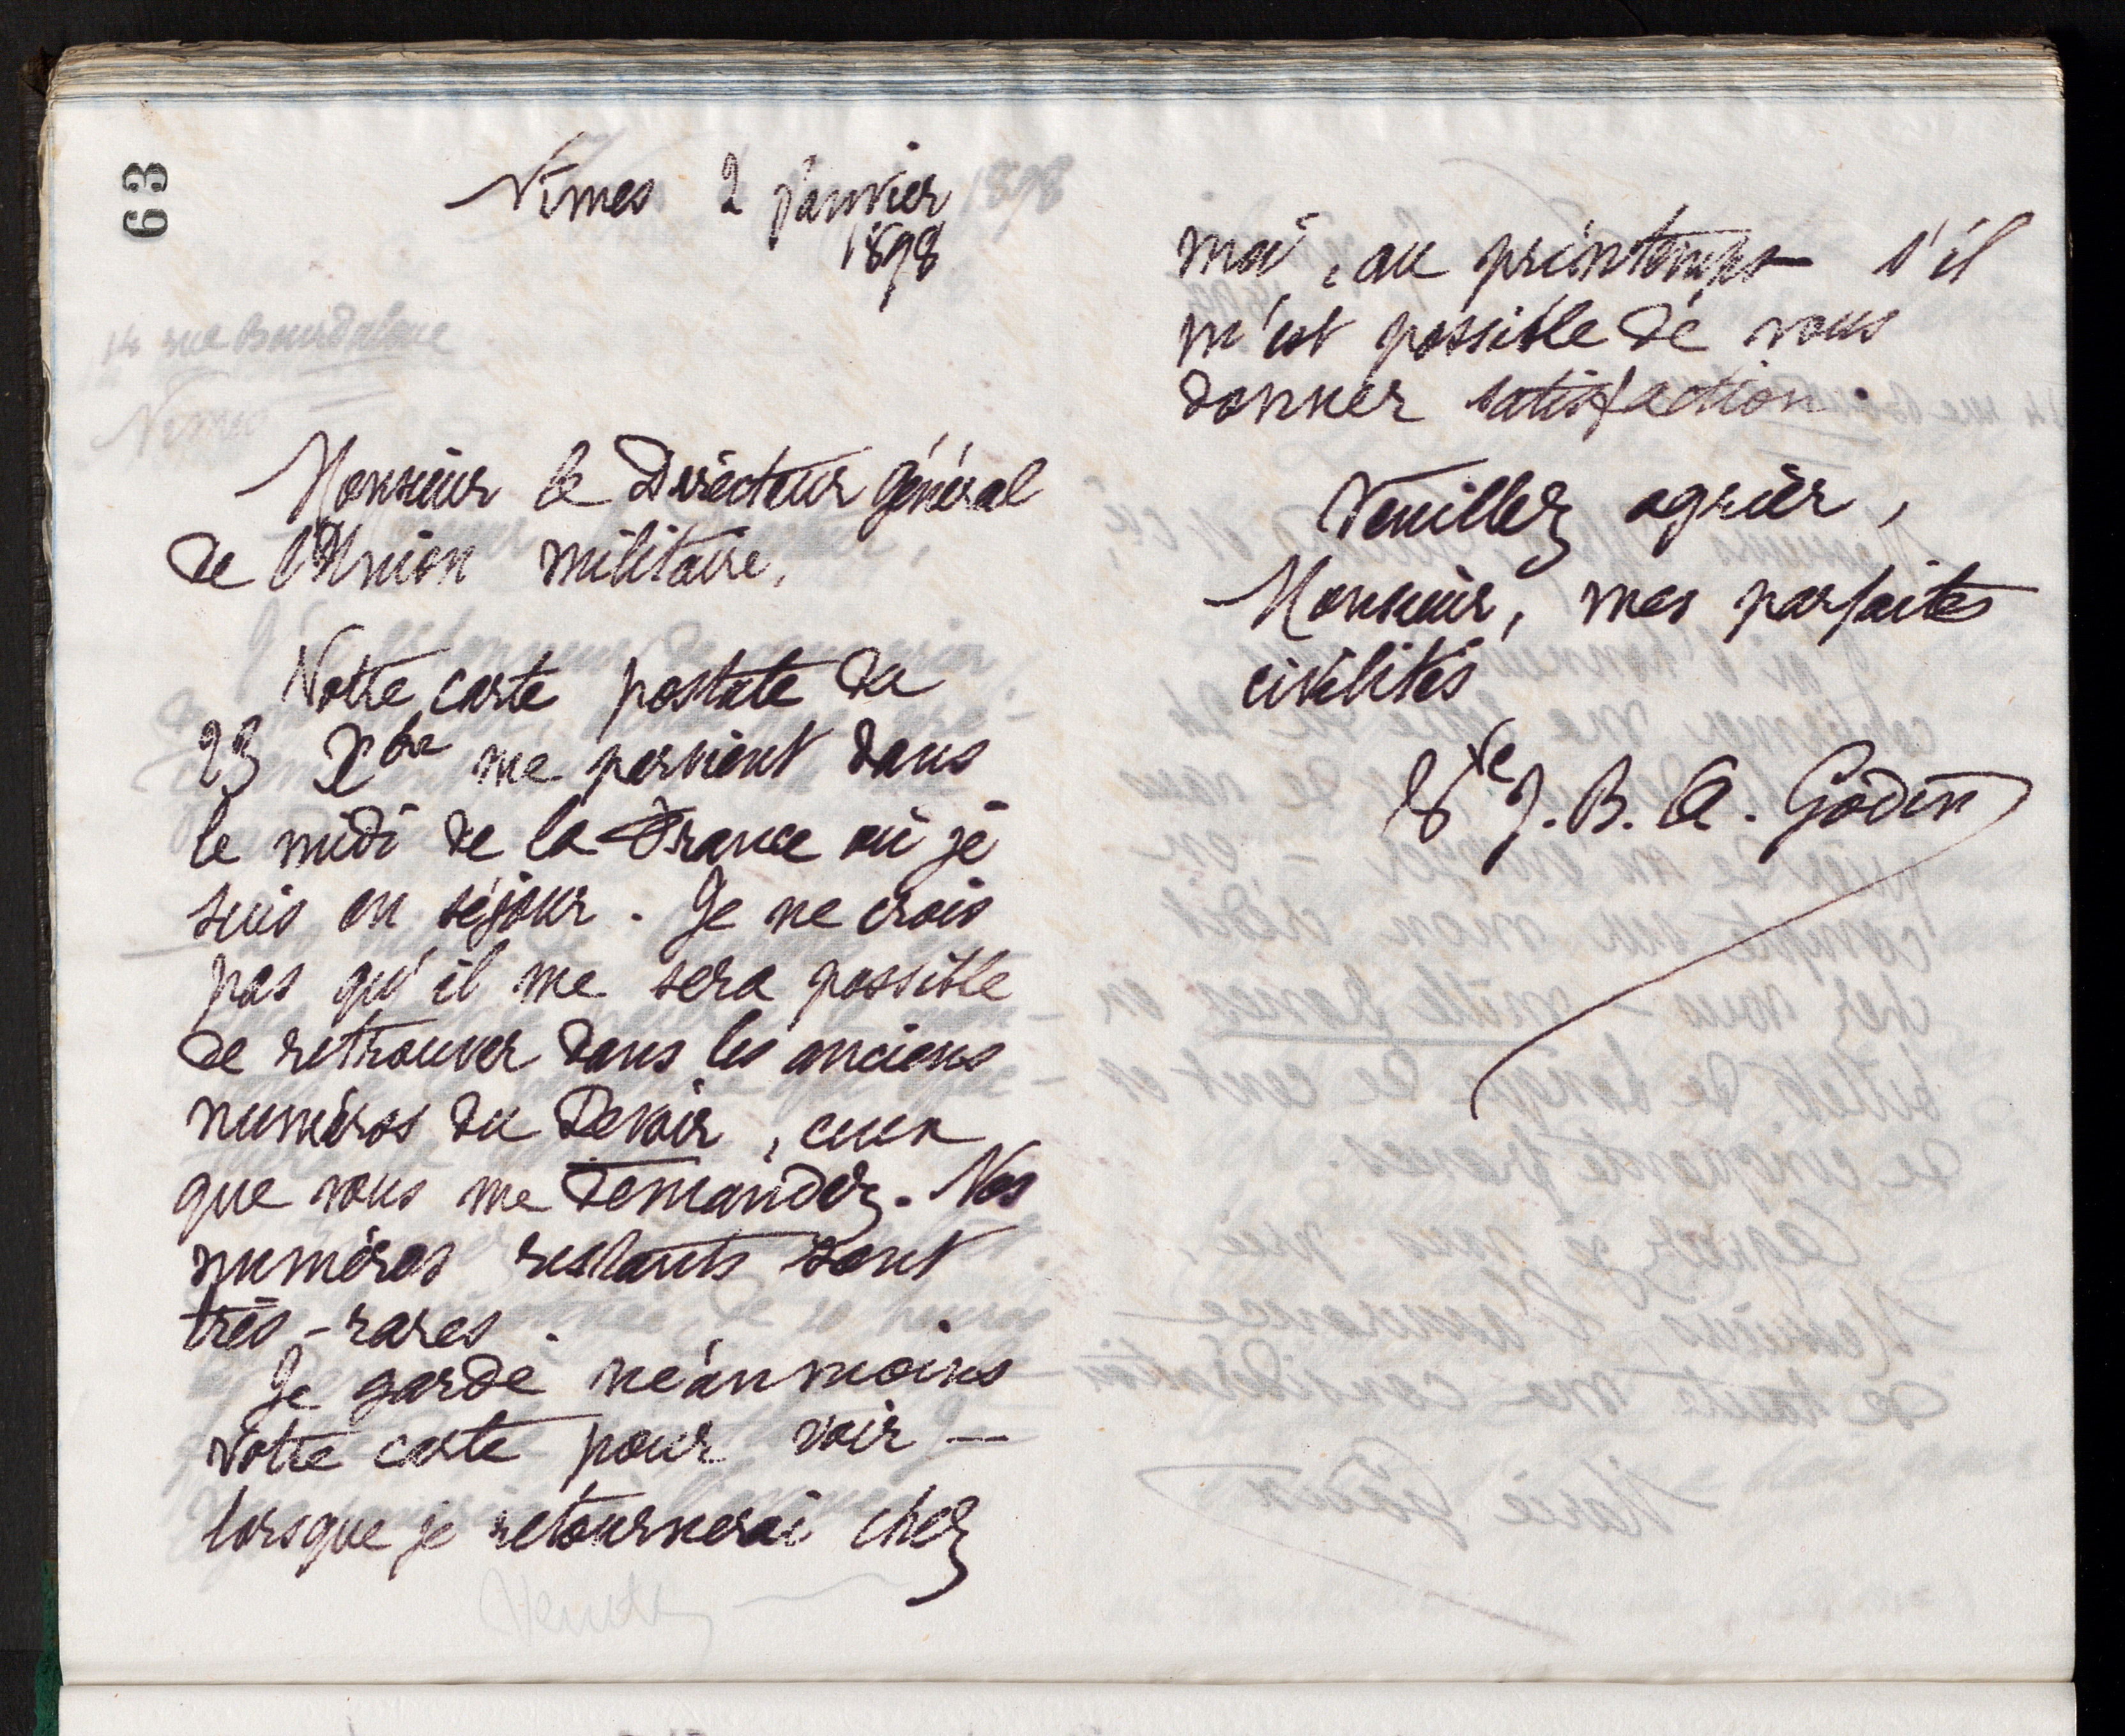 63
Nîmes 2 Janvier
1898
Monsieur le Directeur général
de l'Union militaire,
Votre carte postale du
23 Xbre me parvient dans
le midi de la France où je
suis en séjour. Je ne crois
pas qu'il me sera possible
de retrouver dans les anciens
numéros du Devoir, ceux
que vous me demandez. Nos
numéros restants sont
très-rares.
Je garde néanmoins
votre carte pour voir –
lorsque je retournerai chez
moi, au printemps s'il
m'est possible de vous
donner satisfaction.
Veuillez agréer,
Monsieur, mes parfaites
civilités
Vve J. B. A. Godin